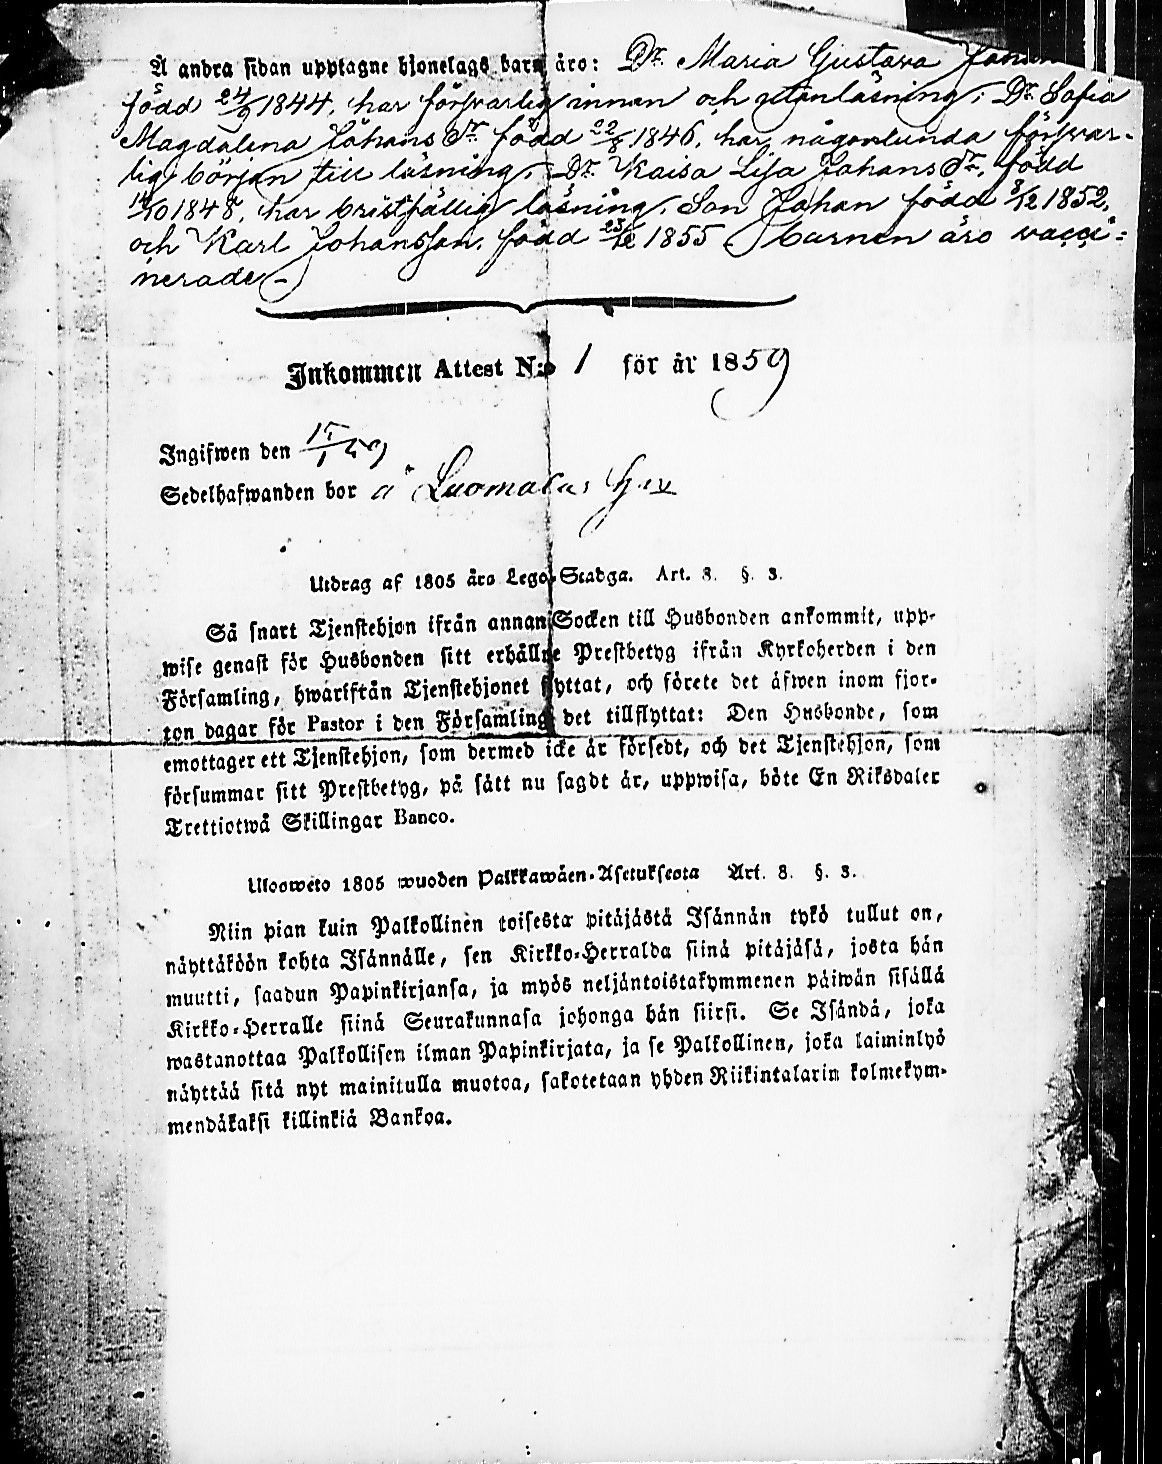 Å andra sidan upptagne hjonelags barn äro: Dr. Maria Gustava
född 24/9 1844, har försvarlig innan och utanläsning; Dr. Sofia
Magdalena Johans Dr. född 22/8 1846, har någorlunda försvar-
lig början till läsning; Dr. Kaisa Lisa Johans Dr. född
14/10 1848, har bristfällig läsning. Son Johan född 8/12 1852,
och Karl Johansson, född 23/12 1855. barnen äro vacci=
nerade.
Inkommen Attest N:o 1 för år 1859
Ingifwen den 15/1 59
Sedelhafwanden bor å Luomalas
Utdrag af 1805 års Lego-Stadga. Art. 8. §. 3.
Så snart Tjenstehjon ifrån annan Socken till Husbonden ankommit, upp-
wise genast för Husbonden sitt erhållne Prestbetyg ifrån Kyrkoherden i den
Församling, hwarifrån Tjenstehjonet flyttat, och förete det äfwen inom fjor-
ton dagar för Pastor i den Församling det tillflyttat: Den Husbonde, som
emottager ett Tjenstehjon, som dermed icke är försedt, och det Tjenstehjon, som
försummar sitt Prestbetyg, på sätt nu sagdt är, uppwisa, böte En Riksdaler
Trettiotwå Skillingar Banco.
Ulosweto 1805 wuoden Palkkawäen-Asetuksesta Art. 8. §. 3.
Niin pian kuin Palkollinen toisesta pitäjästä Isännän tykö tullut on,
näyttäköön kohta Isännälle, sen Kirkko-Herralda siinä pitäjäsä, josta hän
muutti, saadun Papinkirjansa, ja myös neljäntoistakymmenen päiwän sisällä
Kirkko-Herralle siinä Seurakunnasa johonga hän siirsi. Se Isändä, joka
wastanottaa Palkollisen ilman Papinkirjata, ja se Palkollinen, joka laiminlyö
näyttää sitä nyt mainitulla muotoa, sakotetaan yhden Riikintalarin kolmekym-
mendäkaksi killinkiä Bankoa.